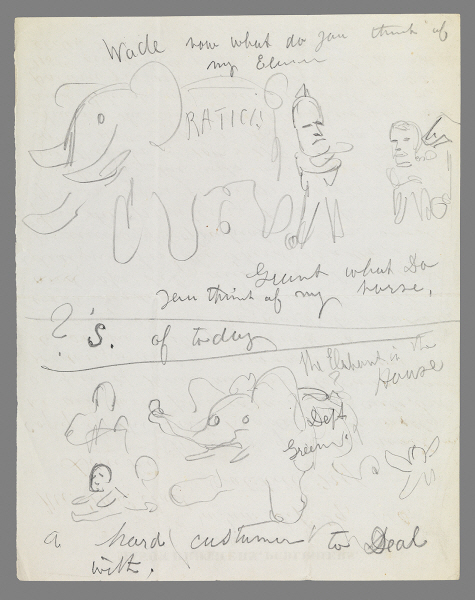 Wade now what do you think of
my
RATIGS
Grant what Do
you think of my horse.
?'S. of today
The Elephant in the
House
Deft
Greens
a hard customer to Deal
with.